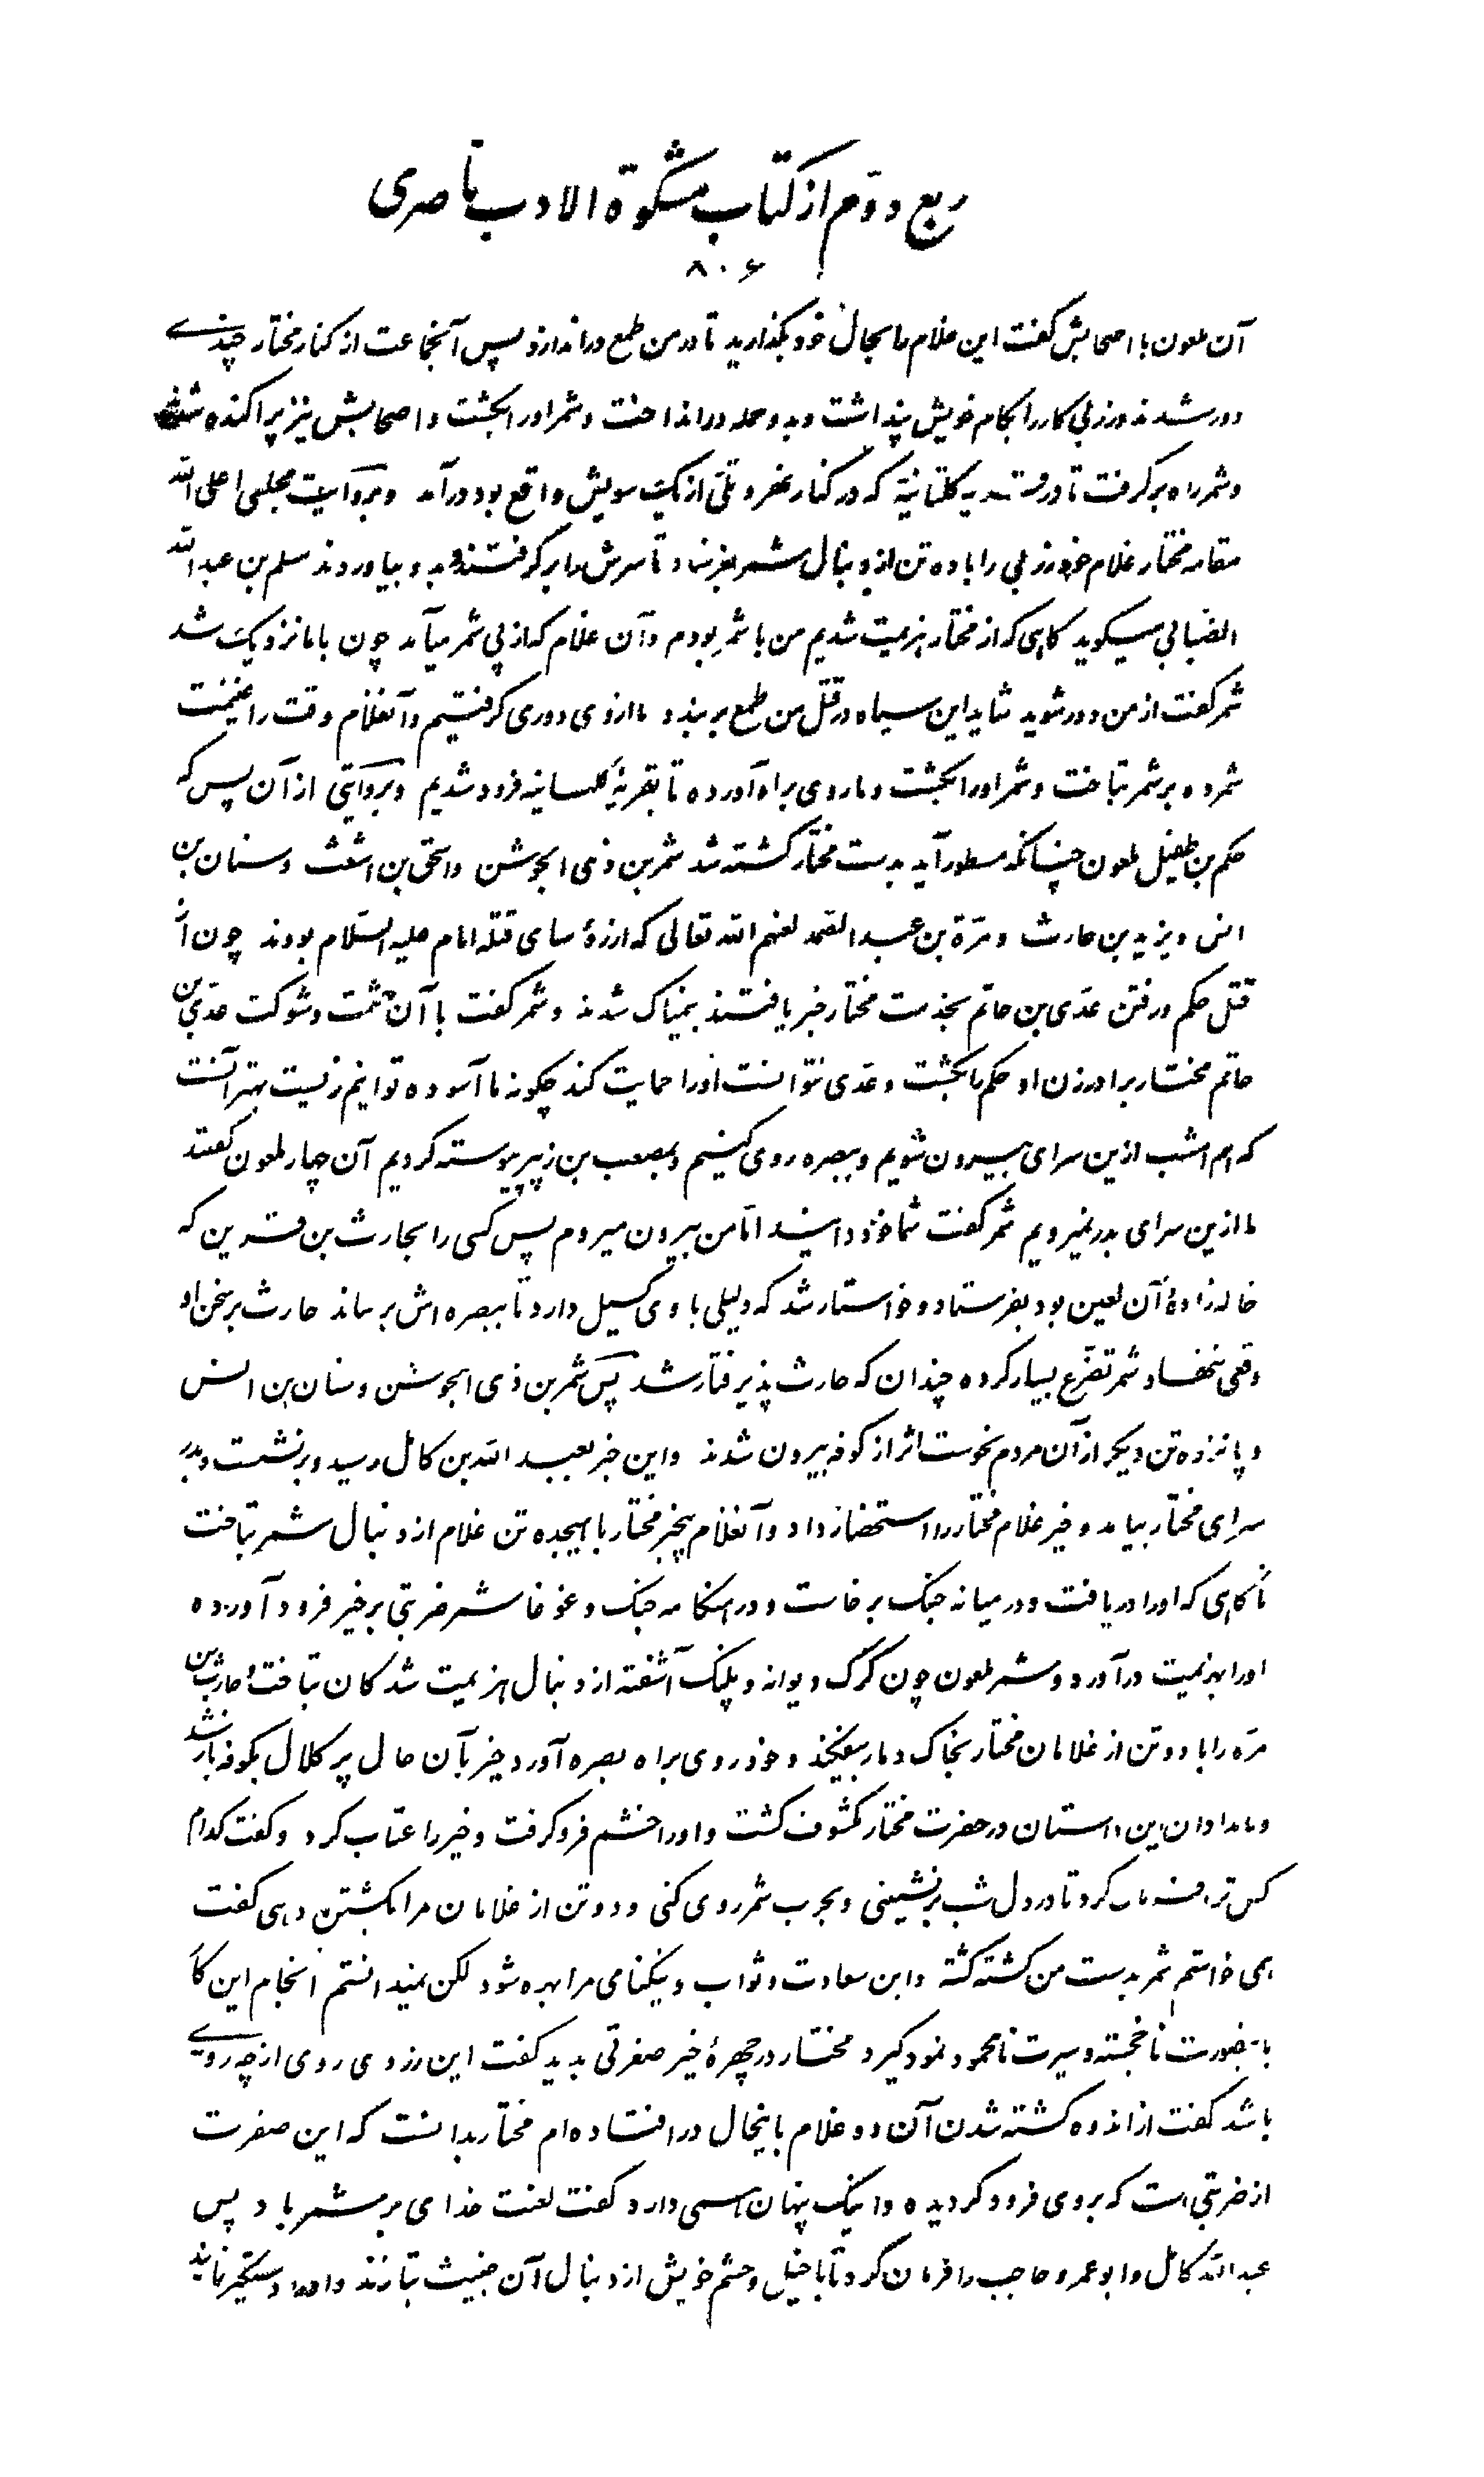 ربع دوّم از کتاب مشکوة الادب ناصری
۸۰۶
آن ملعون با اصحابش گفت این غلام را بحال خود بگذارید تا در من طمع دراندازد پس آنجماعت از کنار مختار چیزے
دور شدند و زربی کار را بکام خویش پنداشت و بدو حمله درانداخت و شمر اورا بکشت و اصحابش نیز پراکنده شدند
و شمر راه برگرفت تا در قریه کلتانیّه که در کنار نهر و تلّی از یک سویش واقع بود درآمد و بروایت مجلسی اعلی اللّه
مقامه مختار غلام خود زربی را با ده تن از دنبال شمر بفرستاد تا سرش را برگرفتند و بدو بیاوردند مسلم بن عبد اللّه
الضبابی میگوید گاهی که از مختار هزیمت شدیم من با شمر بودم و آن غلام که از پی شمر میآمد چون با ما نزدیک شد
شمر گفت از من دور شوید شاید این سیاه در قتل من طمع بربندد ما از وی دوری گرفتیم و آنغلام وقت را غنیمت
شمرده بر شمر بتاخت و شمر اورا بکشت و ما روی براه آورده تا بقریهٔ کلسانیه فرود شدیم و بروایتی از آن پس که
حکم بن طفیل ملعون چنانکه مسطور آید بدست مختار کشته شد شمر بن ذی الجوشن و اسحق بن اشعث و سنان بن
انس و یزید بن حارث و مرّة بن عبد الصّمد لعنهم اللّه تعالی که از رؤسای قتله امام علیه السّلام بودند چون از
قتل حکم و رفتن عدّی بن حاتم بخدمت مختار خبر یافتند بیمناک شدند و شمر گفت با آن حشمت و شوکت عدّی بن
حاتم مختار برادر زن او حکم را بکشت و عدی نتوانست اورا حمایت کند چگونه ما آسوده توانیم زیست بهتر آنست
که هم امشب ازین سرای بیرون شویم و ببصره روی کنیم و بمصعب بن زبیر پیوسته گردیم آن چهار ملعون گفتند
ما ازین سرای بدر نمیرویم شمر گفت شما خود دانید امّا من بیرون میروم پس کسی را بحارث بن قرین که
خاله زادهٔ آن لعین بود بفرستاد و خواستار شد که دلیلی با وی گسیل دارد تا ببصره اش برساند حارث بر سخن او
وقعی ننهاد و شمر تضرّع بسیار کرده چندان که حارث پذیرفتار شد پس شمر بن ذی الجوشن و سنان بن انس
و پانزده تن دیگر از آن مردم نحوست اثر از کوفه بیرون شدند و این خبر بعبید اللّه بن کامل رسید و برنشست و بدر
سرای مختار بیامد و خیر غلام مختار را استحضار داد و آنغلام بیخبر مختار با هیجده تن غلام از دنبال شمر بتاخت
تا گاهی که اورا دریافت و در میانه جنگ برخاست و در هنگامه جنگ و غوغا شمر ضربتی بر خیر فرود آورده
اورا بهزیمت درآورد و شمر ملعون چون گرگ دیوانه و پلنگ آشفته از دنبال هزیمت شدگان بتاخت و حارث بن
مرّه را با دو تن از غلامان مختار بخاک دمار بیفکند و خود روی براه بصره آورد خیر بآن حال پر کلال بکوفه باز شد
و بامدادان این داستان در حضرت مختار مکشوف گشت و اورا خشم فرو گرفت و خیر را عتاب کرد و گفت کدام
کس ترا فرمان کرد تا در دل شب برنشینی و بحرب شمر روی کنی و دو تن از غلامان مرا بکشتن دهی گفت
همی خواستم شمر بدست من کشته گشته و این سعادت و ثواب و نیکنامی مرا بهره شود لکن نمیدانستم انجام این کار
باینصورت ناخجسته و سیرت نامحمود نمود گیرد مختار در چهرهٔ خیر صفرتی بدید گفت این زردی روی از چه روے
باشد گفت از اندوه کشته شدن آن دو غلام باینحال درافتاده ام مختار بدانست که این صفرت
از ضربتی است که بروی فرود گردیده و اینک پنهان همی دارد گفت لعنت خدای بر شمر باد پس
عبد اللّه کامل و ابو عمرو حاجب را فرمان کرد تا با خیل و حشم خویش از دنبال آن خبیث بتازند و اورا دستگیر نمایند